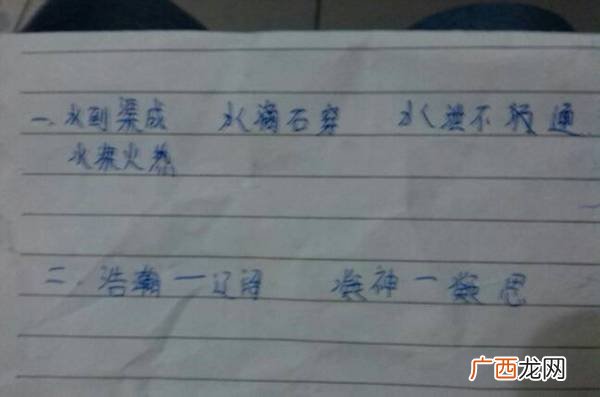 一、水到渠成 水滴石穿 水泄不通
水深火热
二、浩瀚一辽阔 凝神一凝思
广西龙网